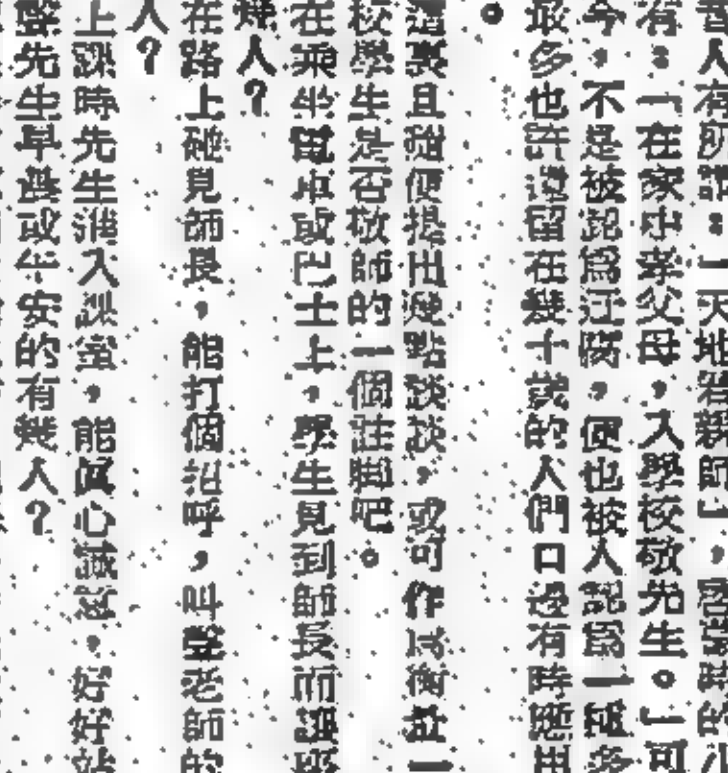 人有所謂：「天地君親師」，
有：「在家中孝父母，入學校敬先生。」可
今，不是被認為迂腐，便也被人認為一種多
最多也許還留在幾十歲的人們口邊有時應用
。
這裏且隨便提出幾點談談，或可作為衡量一
校學生是否敬師的一個註腳吧。
在乘坐電車或巴士上，學生見到師長而讓座
幾人？
在路上碰見師長，能打個招呼，叫聲老師的
人？
上課時先生進入課室，能真心誠意，好好站
聲先生早晨或午安的有幾人？